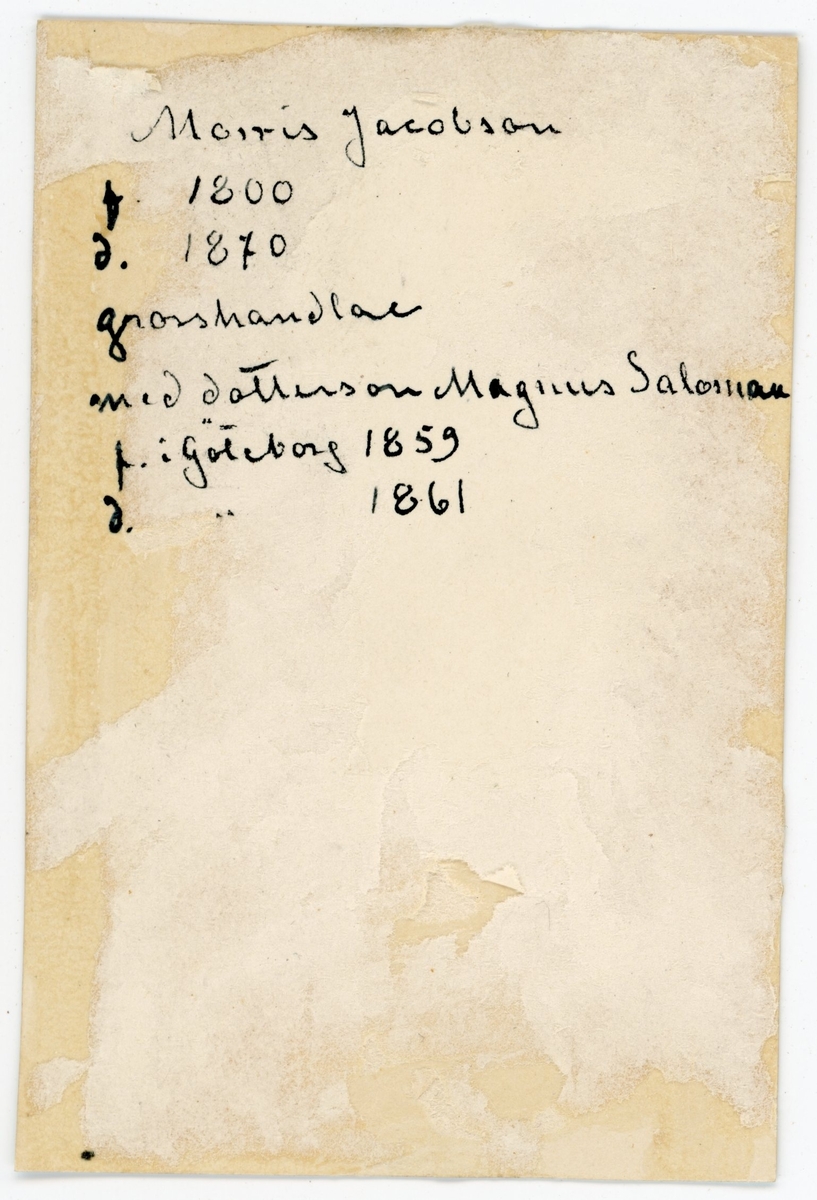 Morris Jacobson
f. 1800
d. 1870
grosshandlar
med dotterson Magnus Saloman
f. i Göteborg 1859
d. " 1861